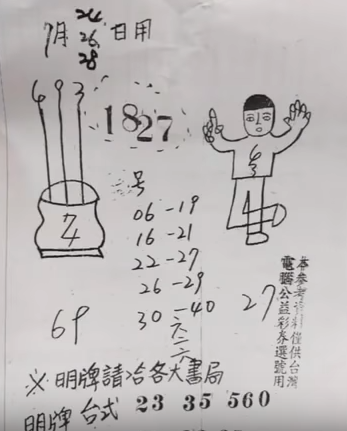 7月 24 26 28 日用
6 9 3
1827
号
06-19
16-21
22-27
26-29
30-40
二六二六
74
69
27
本參考資料僅供台灣
電腦公益彩券選號用
※明牌請洽各大書局
明牌 台式 23 35 560